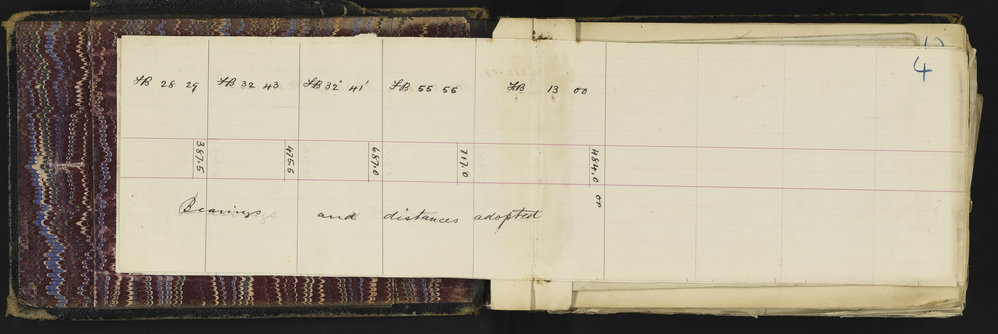 4
FB 28 29 FB 32 43 FB 32° 41' FB 55 55 FB 13 00
387.5 475.5 687.0 717.0 484.0 00
Bearings and distances adopted